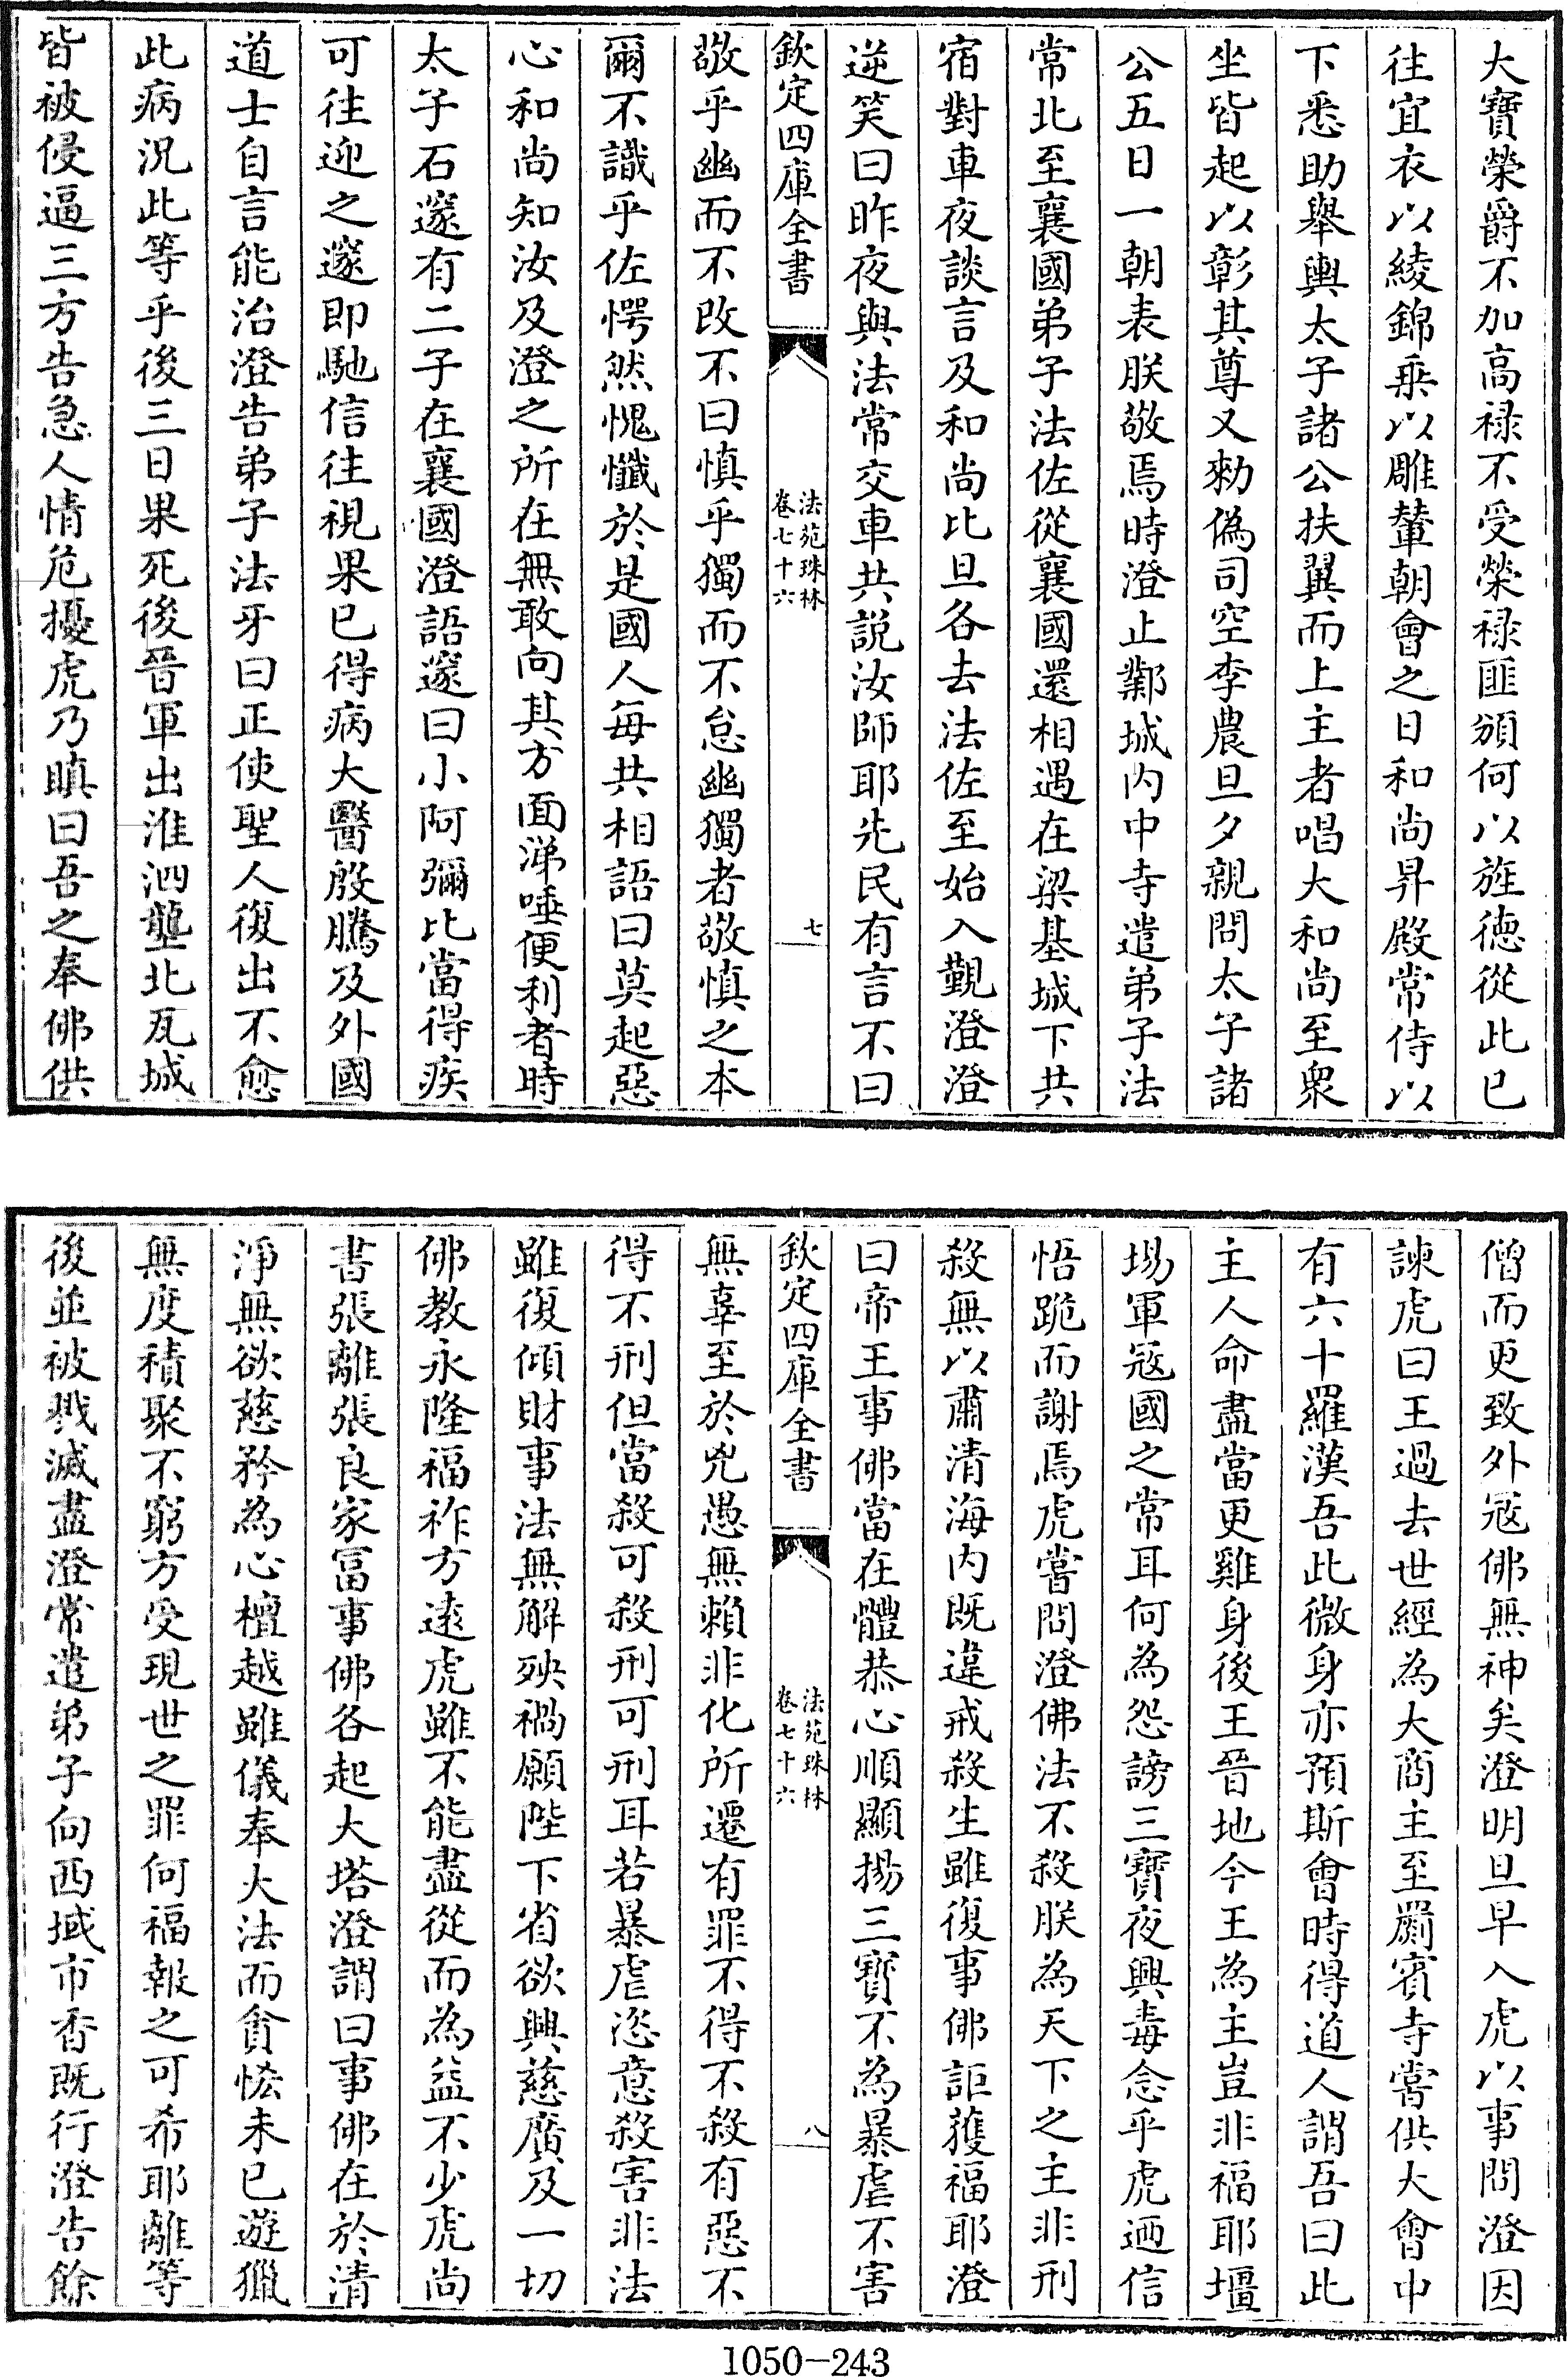 大寶榮爵不加高禄不受榮禄匪頒何以旌徳從此已
往宜衣以綾錦乗以雕輦朝會之日和尚昇殿常侍以
下悉助舉輿太子諸公扶翼而上主者唱大和尚至衆
坐皆起以彰其尊又勅偽司空李農旦夕親問太子諸
公五日一朝表朕敬焉時澄止鄴城内中寺遣弟子法
常北至襄國弟子法佐從襄國還相遇在梁基城下共
宿對車夜談言及和尚比旦各去法佐至始入覲澄澄
逆笑曰昨夜與法常交車共説汝師耶先民有言不曰
欽定四庫全書
法苑珠林
卷七十六
七
敬乎幽而不改不曰慎乎獨而不怠幽獨者敬慎之本
爾不識乎佐愕然愧懺於是國人每共相語曰莫起惡
心和尚知汝及澄之所在無敢向其方面涕唾便利者時
太子石邃有二子在襄國澄語邃曰小阿彌比當得疾
可往迎之邃即馳信往視果已得病大醫殷騰及外國
道士自言能治澄告弟子法牙曰正使聖人復出不愈
此病況此等乎後三日果死後晉軍出淮泗壟北瓦城
皆被侵逼三方告急人情危擾虎乃瞋曰吾之奉佛供
僧而更致外冦佛無神矣澄明旦早入虎以事問澄因
諫虎曰王過去世經為大商主至罽賓寺嘗供大會中
有六十羅漢吾此微身亦預斯會時得道人謂吾曰此
主人命盡當更雞身後王晉地今王為主豈非福耶壇
場軍冦國之常耳何為怨謗三寶夜興毒念乎虎迺信
悟跪而謝焉虎嘗問澄佛法不殺朕為天下之主非刑
殺無以肅清海内既違戒殺生雖復事佛詎獲福耶澄
曰帝王事佛當在體恭心順顯揚三寶不為暴虐不害
欽定四庫全書
法苑珠林
卷七十六
八
無辜至於兇愚無頼非化所遷有罪不得不殺有惡不
得不刑但當殺可殺刑可刑耳若暴虐恣意殺害非法
雖復傾財事法無解殃禍願陛下省欲興慈廣及一切
佛教永隆福祚方遠虎雖不能盡從而為益不少虎尚
書張離張良家冨事佛各起大塔澄謂曰事佛在於清
淨無欲慈矜為心檀越雖儀奉大法而貪悋未已遊獵
無度積聚不窮方受現世之罪何福報之可希耶離等
後並被戮滅盡澄常遣弟子向西域市香既行澄告餘
1050-243